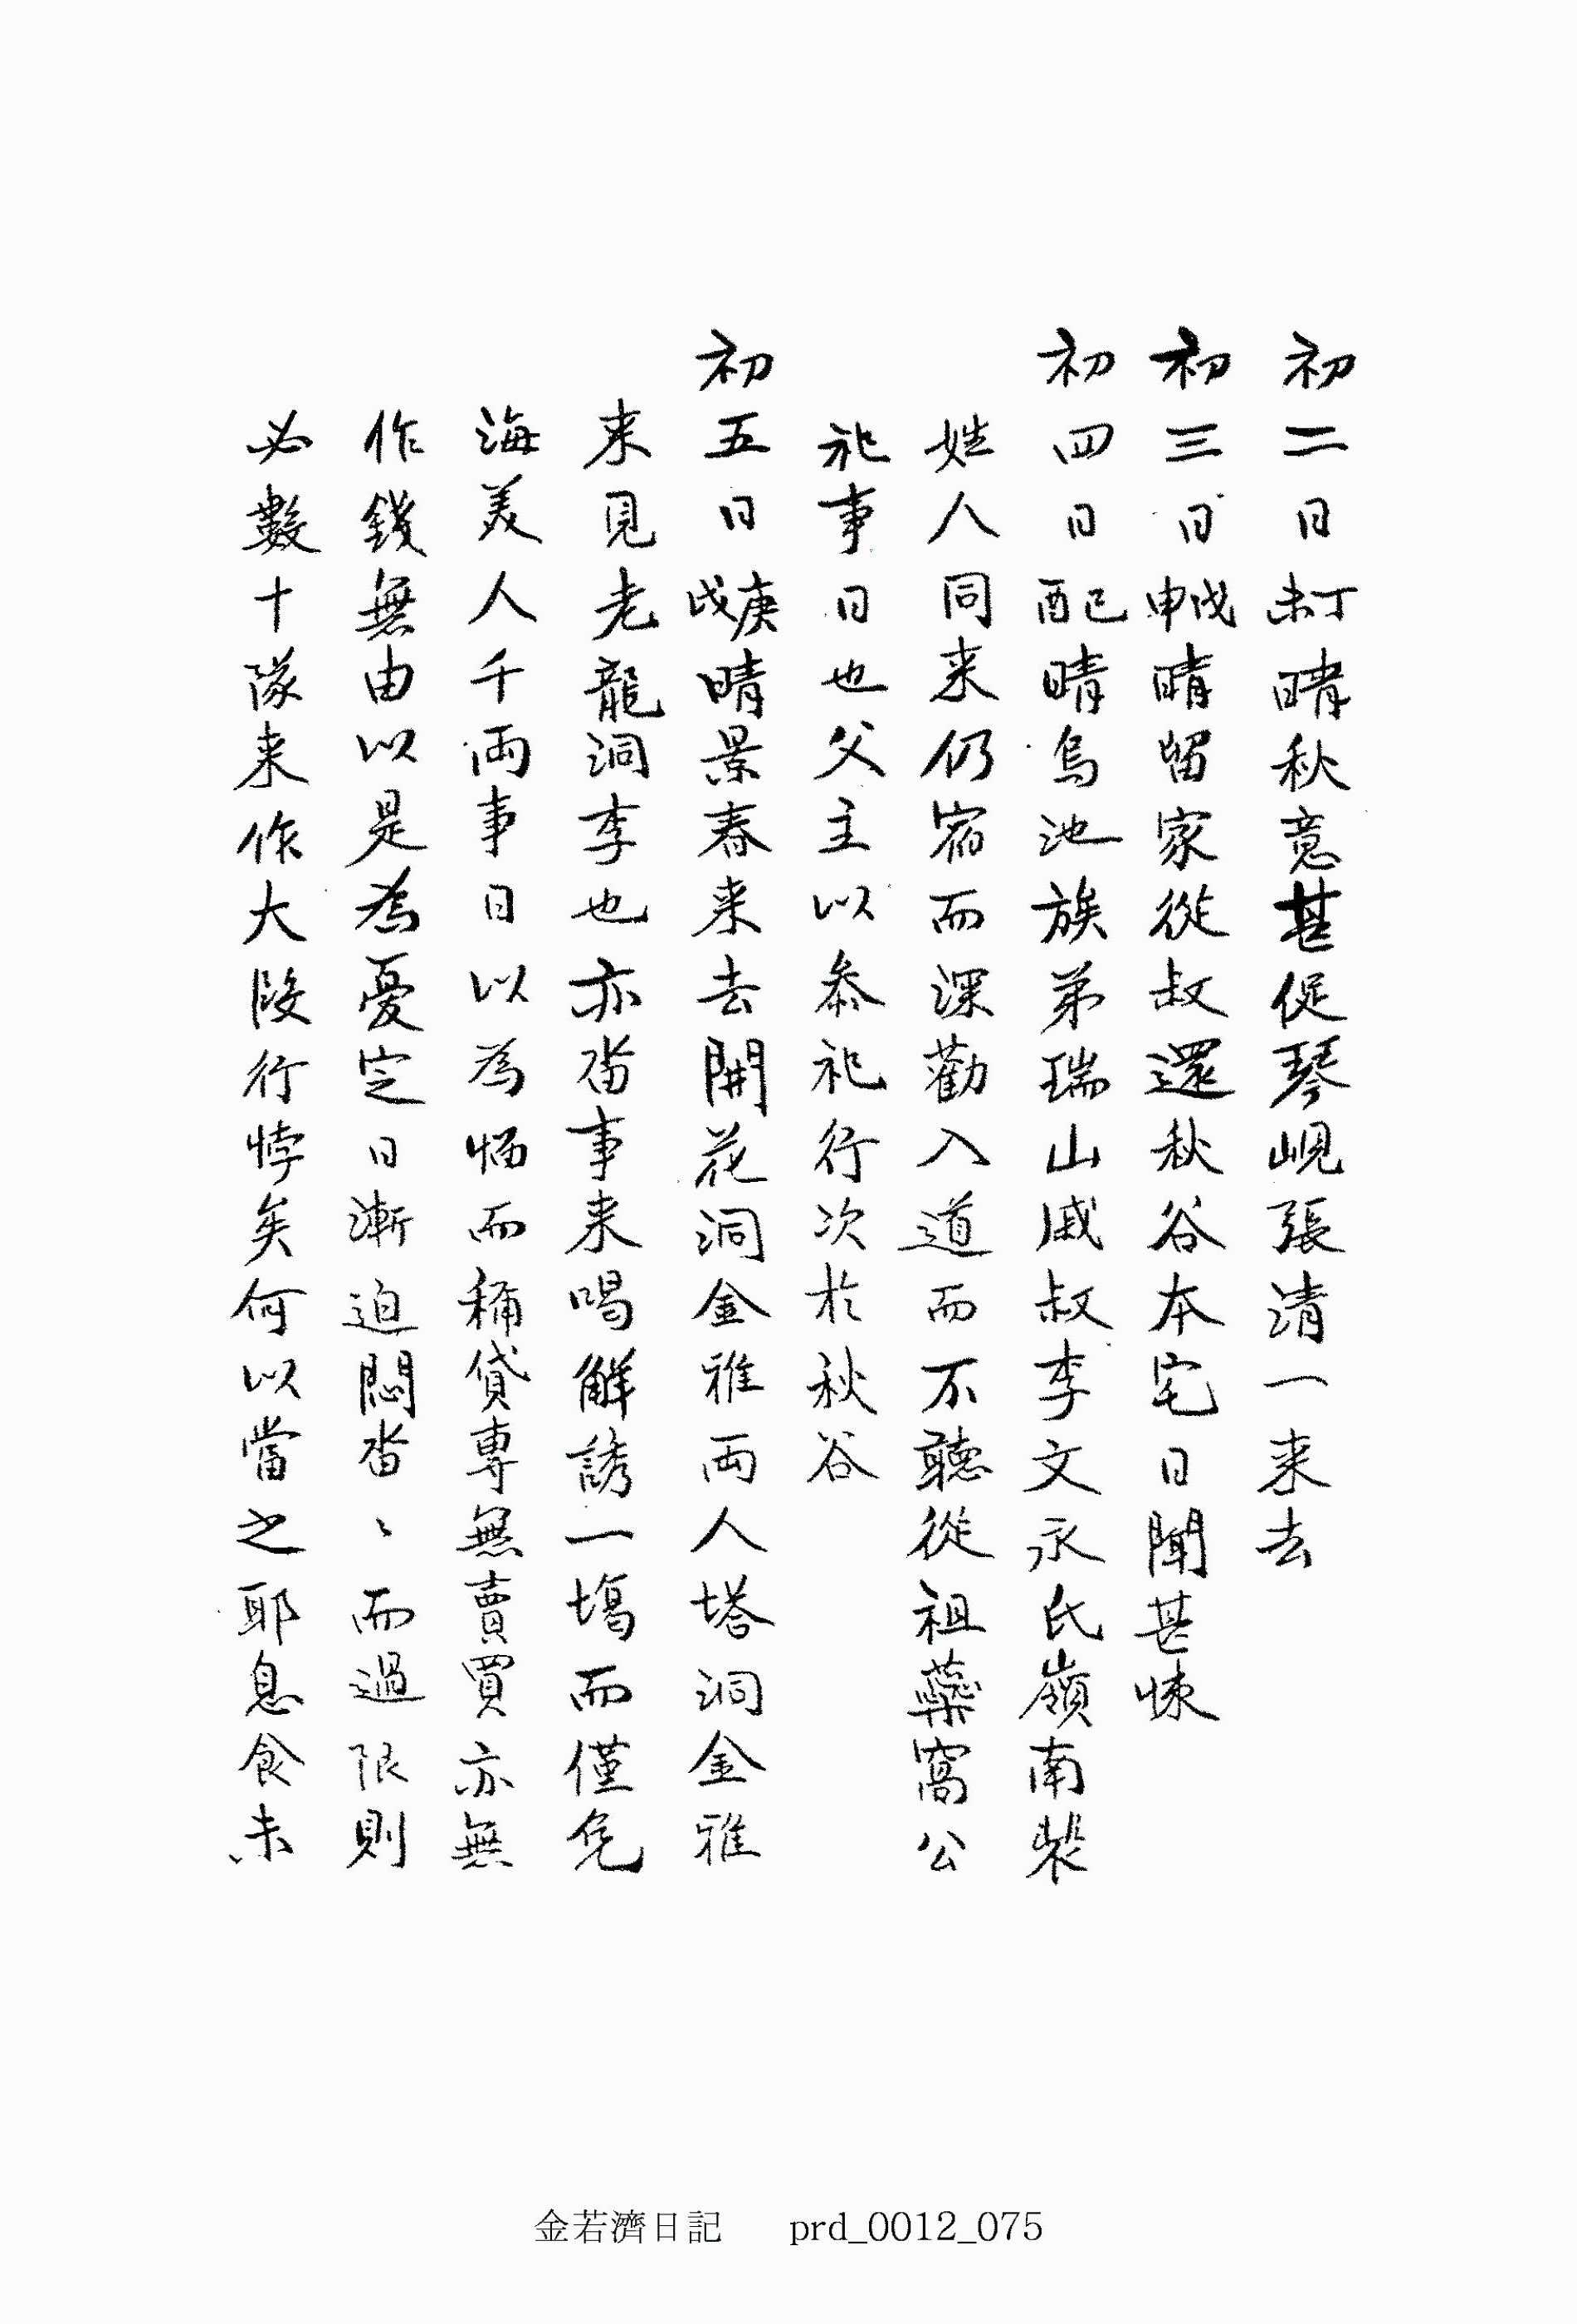 初二日丁未晴秋意甚促琴峴張清一来去
初三日戊申晴留家從叔還秋谷本宅日聞甚悚
初四日己酉晴烏池族弟瑞山戚叔李文永氏嶺南裴
姓人同来仍宿而深勸入道而不聽從祖藥窩公
祀事日也父主以参祀行次於秋谷
初五日庚戌晴景春来去開花洞金雅両人塔洞金雅
来見老龍洞李也亦畓事来喝觧誘一塲而僅免
海美人千両事日以為悩而稱貸専無賣買亦無
作錢無由以是為憂定日漸迫悶畓〻而過限則
必數十隊来作大段行悖矣何以當之耶息食未
金若濟日記 prd_0012_075